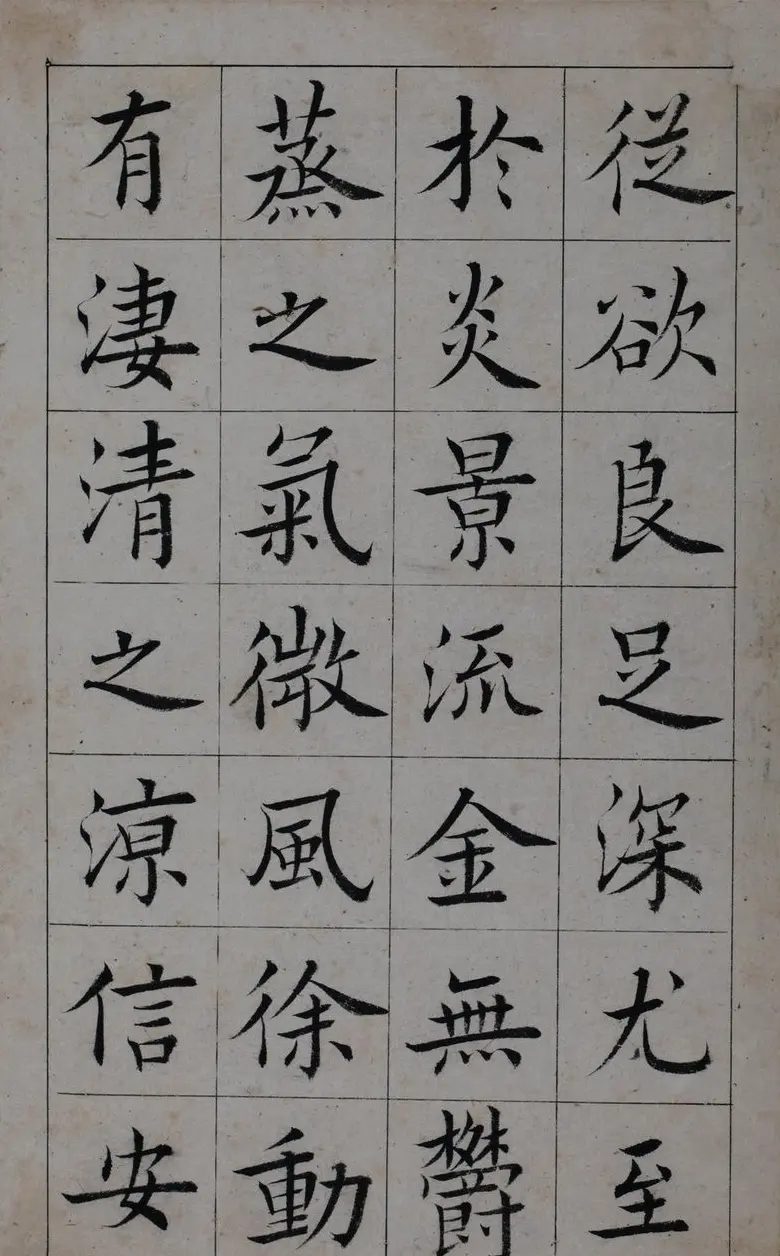 從欲良足深尤至
於炎景流金無欝
蒸之氣微風徐動
有淒清之涼信安